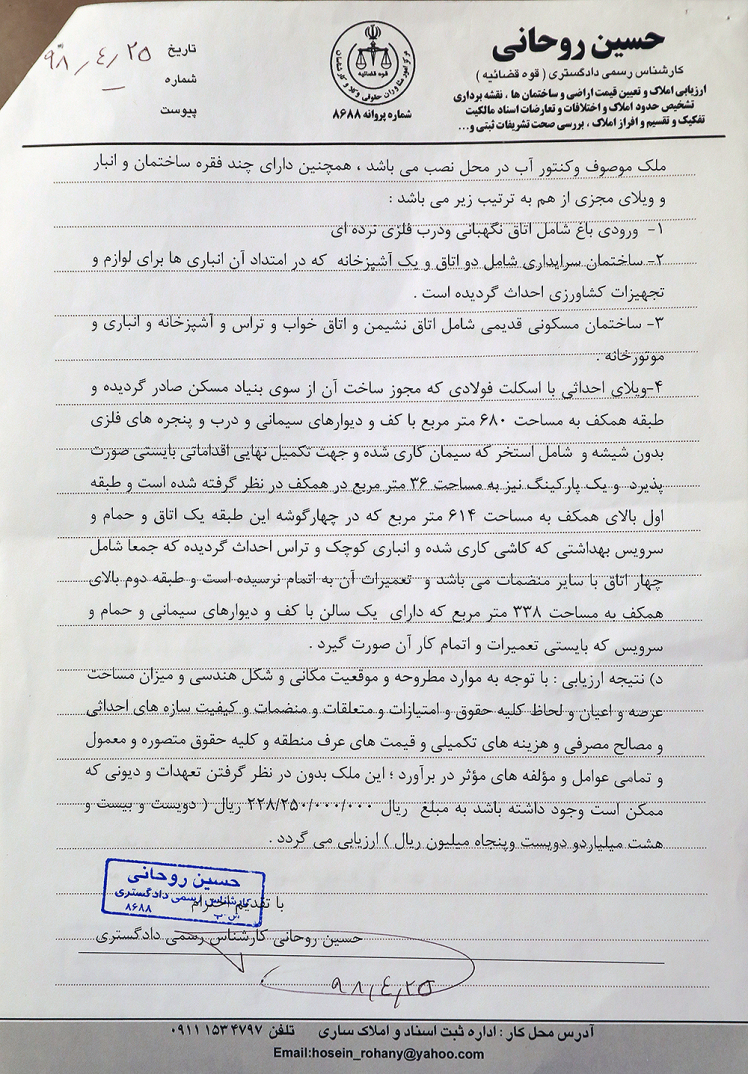 حسین روحانی
کارشناس رسمی دادگستری ( قوه قضائیه )
ارزیابی املاک و تعیین قیمت اراضی و ساختمان ها ، نقشه برداری
تشخیص حدود املاک و اختلافات و تعارضات اسناد مالکیت
تفکیک و تقسیم و افراز املاک ، بررسی صحت تشریفات ثبتی و...
قوه قضائیه
شماره پروانه ۸۶۸۸
تاریخ ۹۸,۴,۲۵
شماره
پیوست
ملک موصوف وکنتور آب در محل نصب می باشد ، همچنین دارای چند فقره ساختمان و انبار
و ویلای مجزی از هم به ترتیب زیر می باشد :
۱- ورودی باغ شامل اتاق نگهبانی ودرب فلزی نرده ای
۲- ساختمان سرایداری شامل دو اتاق و یک آشپزخانه که در امتداد آن انباری ها برای لوازم و
تجهیزات کشاورزی احداث گردیده است .
۳- ساختمان مسکونی قدیمی شامل اتاق نشیمن و اتاق خواب و تراس و آشپزخانه و انباری و
موتورخانه .
۴-ویلای احداثی با اسکلت فولادی که مجوز ساخت آن از سوی بنیاد مسکن صادر گردیده و
طبقه همکف به مساحت ۶۸۰ متر مربع با کف و دیوارهای سیمانی و درب و پنجره های فلزی
بدون شیشه و شامل استخر که سیمان کاری شده و جهت تکمیل نهایی اقداماتی بایستی صورت
پذیرد و یک پارکینگ نیز به مساحت ۳۶ متر مربع در همکف در نظر گرفته شده است و طبقه
اول بالای همکف به مساحت ۶۱۴ متر مربع که در چهارگوشه این طبقه یک اتاق و حمام و
سرویس بهداشتی که کاشی کاری شده و انباری کوچک و تراس احداث گردیده که جمعا شامل
چهار اتاق با سایر منضمات می باشد و تعمیرات آن به اتمام نرسیده است و طبقه دوم بالای
همکف به مساحت ۳۳۸ متر مربع که دارای یک سالن با کف و دیوارهای سیمانی و حمام و
سرویس که بایستی تعمیرات و اتمام کار آن صورت گیرد .
د) نتیجه ارزیابی : با توجه به موارد مطروحه و موقعیت مکانی و شکل هندسی و میزان مساحت
عرصه و اعیان و لحاظ کلیه حقوق و امتیازات و متعلقات و منضمات و کیفیت سازه های احداثی
و مصالح مصرفی و هزینه های تکمیلی و قیمت های عرف منطقه و کلیه حقوق متصوره و معمول
و تمامی عوامل و مؤلفه های مؤثر در برآورد ؛ این ملک بدون در نظر گرفتن تعهدات و دیونی که
ممکن است وجود داشته باشد به مبلغ ریال ۲۲۸/۲۵۰/۰۰۰/۰۰۰ ریال ( دویست و بیست و
هشت میلیاردو دویست وپنجاه میلیون ریال ) ارزیابی می گردد .
حسین روحانی
کارشناس رسمی دادگستری
۸۶۸۸
با تقدیم احترام
حسین روحانی کارشناس رسمی دادگستری
۹۸,۴,۲۵
آدرس محل کار : اداره ثبت اسناد و املاک ساری تلفن ۴۷۹۷ ۱۵۳ ۰۹۱۱
Email:hosein_rohany@yahoo.com